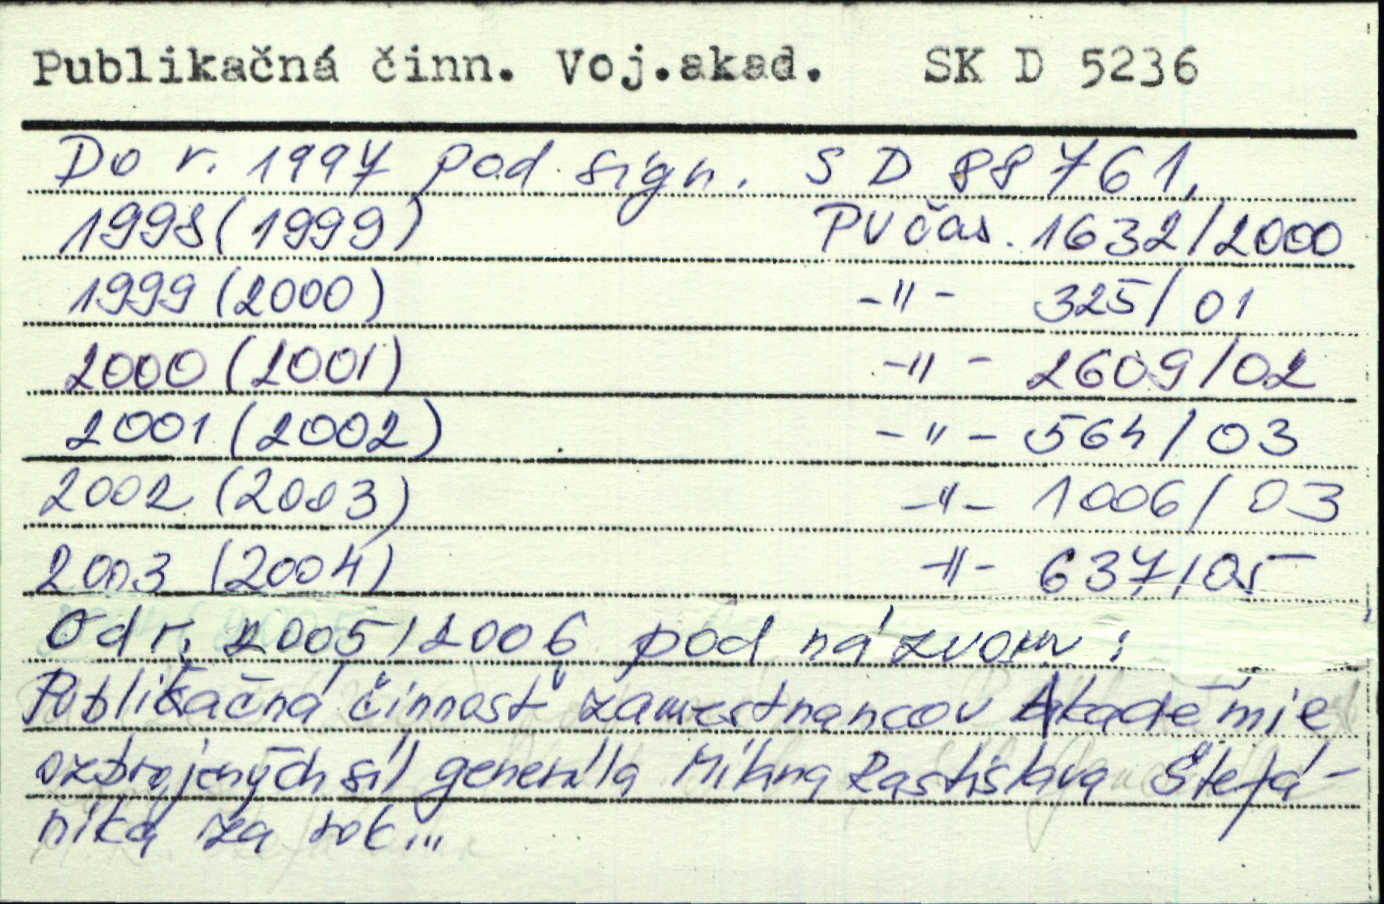 Publikačná činn. Voj.akad. SK D 5236
Do r. 1997 pod sign. S D 88761,
1998 (1999) PV čas. 1632/2000
1999 (2000) -"- 325/01
2000 (2001) -"- 2609/02
2001 (2002) -"- 564/03
2002 (2003) -"- 1006/03
2003 (2004) -"- 637/05
Od r. 2005/2006 pod názvom:
Publikačná činnosť zamestnancov Akadémie
ozbrojených síl generála Milana Rastislava Štefá-
nika za rok...